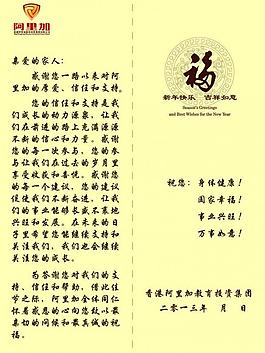 阿里加
亲爱的家人：
感谢您一路以来对阿
里加的厚爱、信任和支持。
您的信任和支持是我
们成长的动力源泉，让我
们在前进的路上充满源源
不断的信心和力量。感谢
您的每一次参与，您的参
与让我们在过去的岁月里
享受收获和喜悦。感谢您
的每一个建议，您的建议
促使我们不断奋进，让我
们的事业能够长盛不衰地
兴旺和发展。在未来的日
子里希望您能继续支持和
关注我们，我们也会继续
关注您的成长。
为答谢您对我们的支
持、信任和帮助，借此佳
节之际，阿里加全体同仁
怀着感恩的心向您致以最
亲切的问候和最真诚的祝
福。
福
新年快乐 吉祥如意
Season's Greetings
and Best Wishes for the New Year
祝您：身体健康！
阖家幸福！
事业兴旺！
万事如意！
香港阿里加教育投资集团
二零一三年 月 日